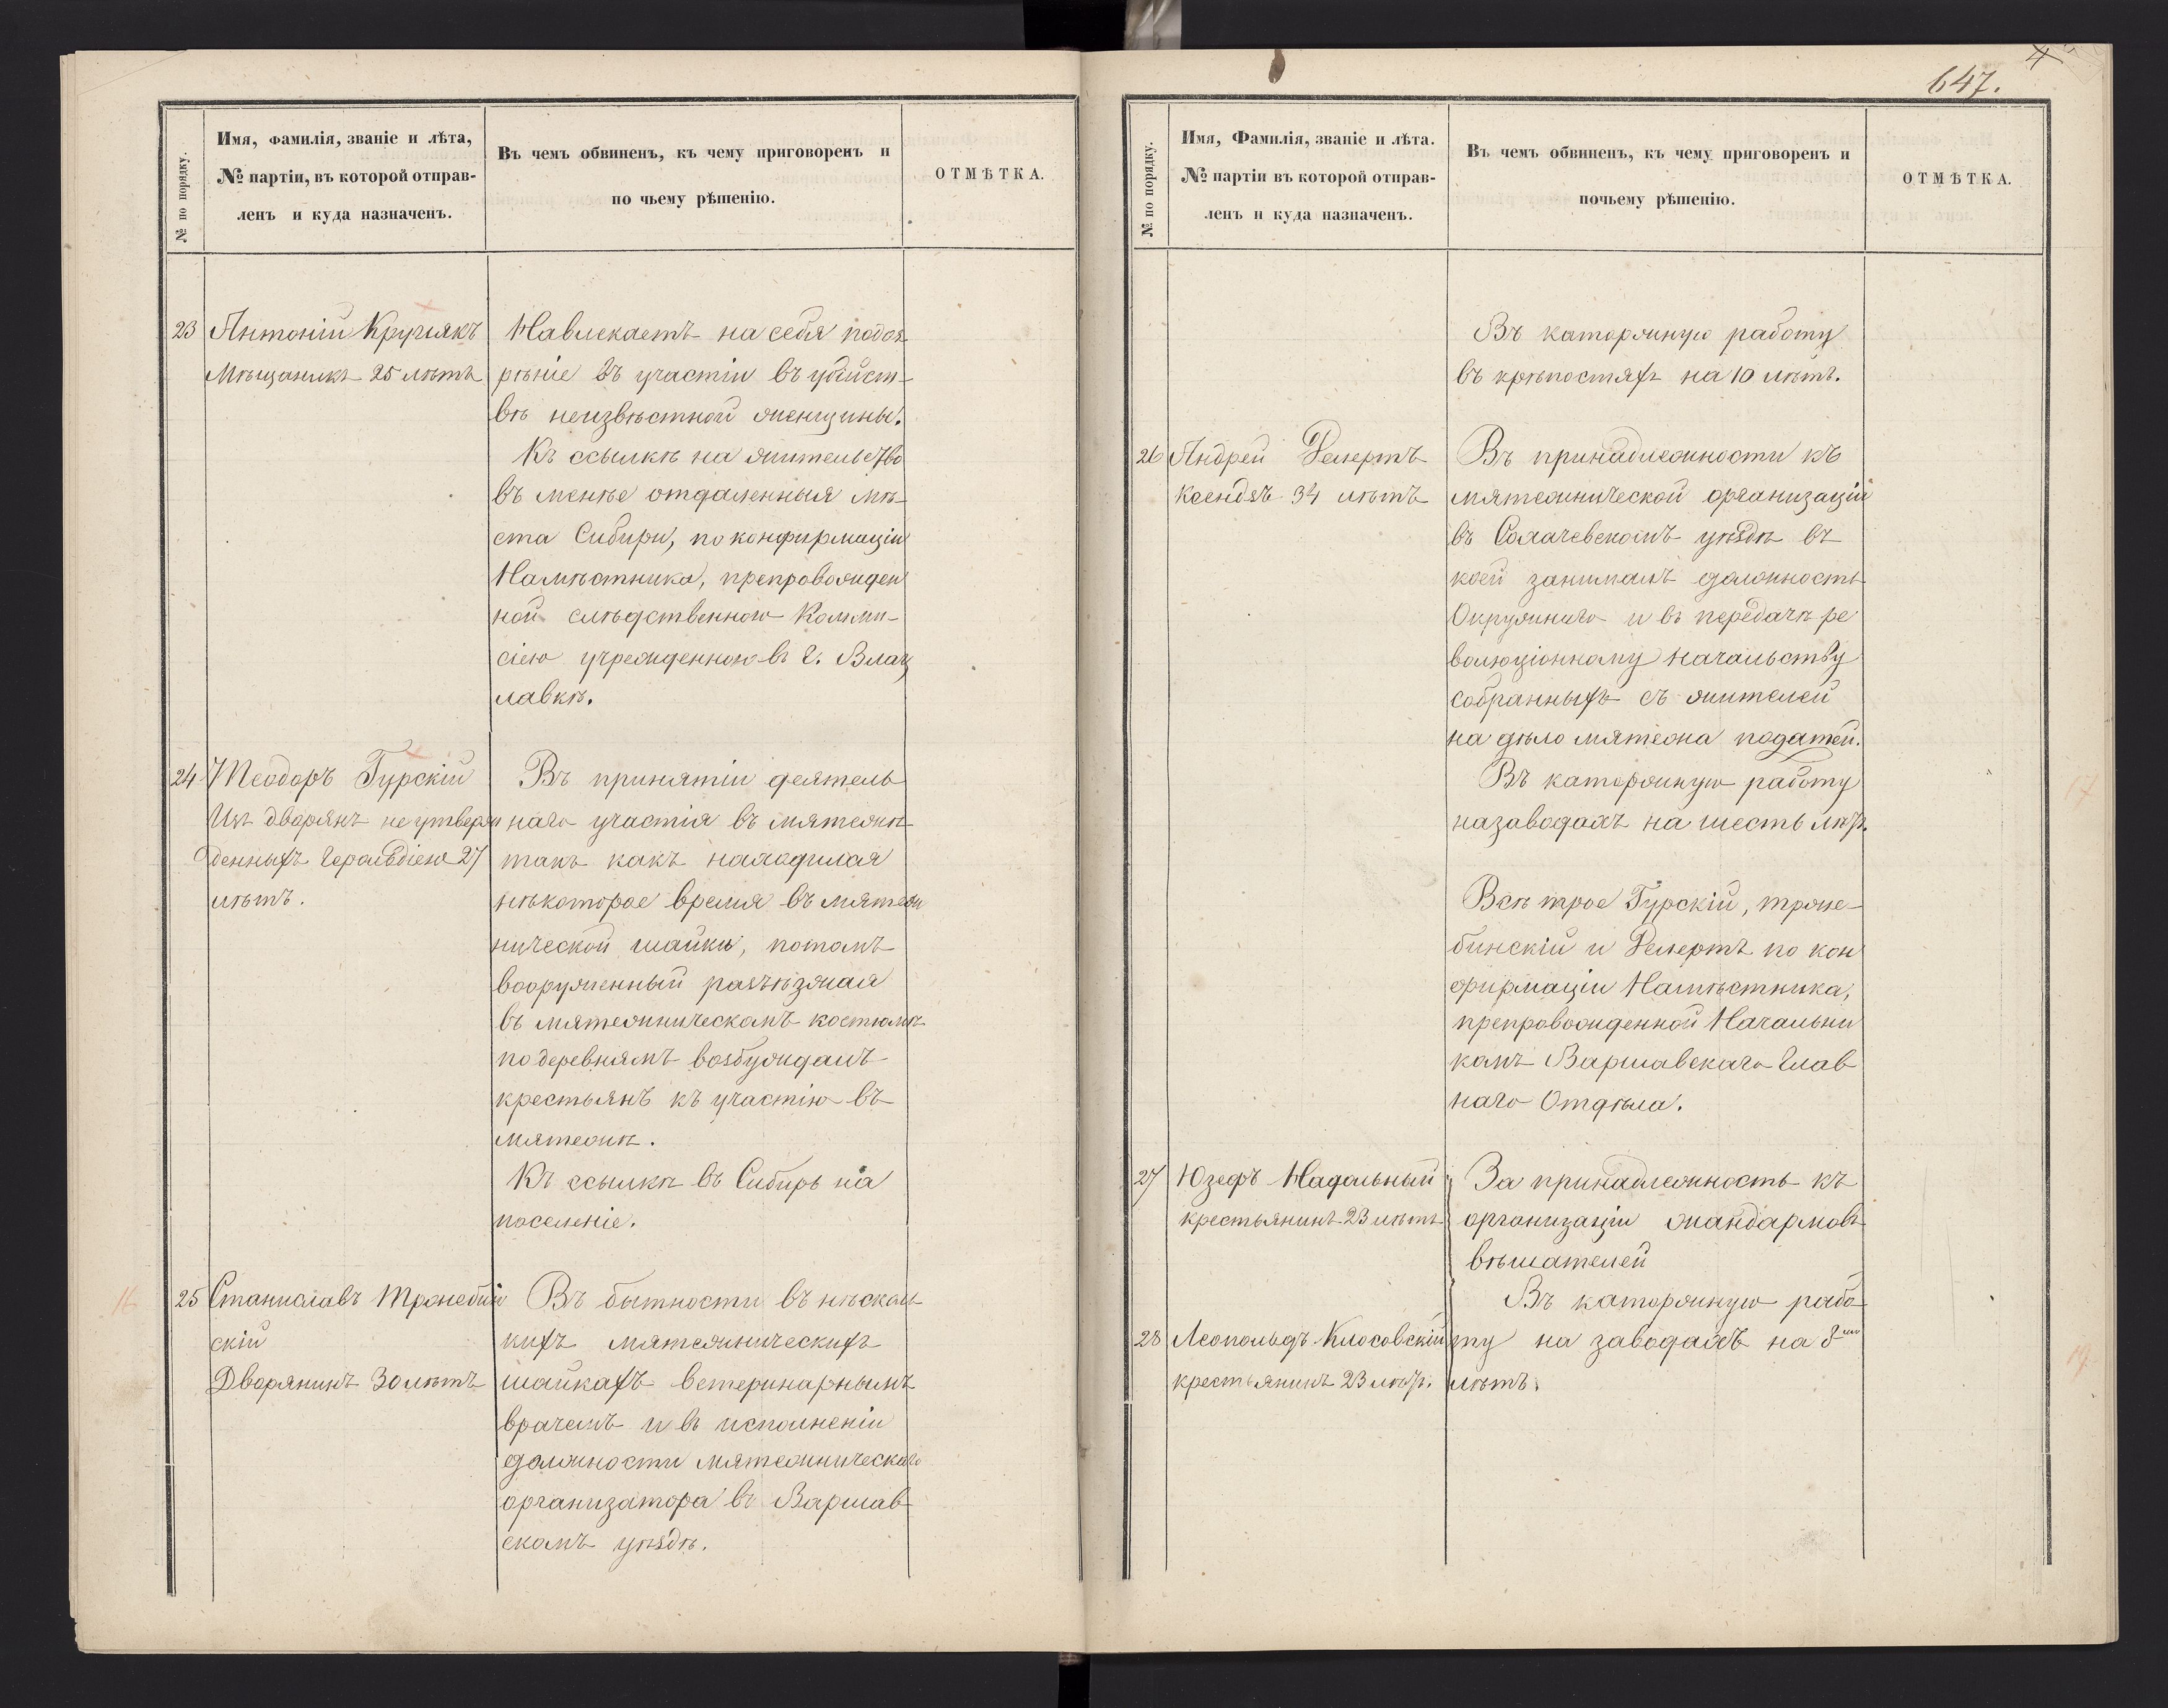 № по порядку.
Имя, фамилія, званіе и лѣта,
№ партіи, въ которой отправ-
ленъ и куда назначенъ.
Въ чемъ обвиненъ, къ чему приговоренъ и
по чьему рѣшенію.
ОТМѢТКА.
23 Антоній Кручякъ
Мѣщанинъ 25 лѣтъ
Навлекаетъ на себя подоз
рѣніе въ участіи въ убійст-
вѣ неизвѣстной женщины.
Къ ссылкѣ на жительство
въ менѣе отдаленныя мѣ-
ста Сибири, по конфирмаціи
Намѣстника, препровожден
ной слѣдственною Комми-
сіею учрежденною въ г. Влац
лавкѣ.
24 Теодоръ Гурскій
Изъ дворянъ не утверж
денныхъ Герольдіею 27
лѣтъ.
Въ принятіи деятель
наго участія въ мятежѣ
такъ какъ находился
нѣкоторое время въ мятеж
нической шайкѣ, потомъ
вооруженный разъѣзжая
въ мятежническомъ костюмѣ
по деревнямъ возбуждалъ
крестьянъ къ участію въ
мятежѣ.
Къ ссылкѣ въ Сибирь на
поселеніе.
16
25 Станиславъ Тржебин
скій
Дворянинъ 30 лѣтъ
Въ бытности въ нѣсколь
кихъ мятежническихъ
шайкахъ ветеринарнымъ
врачемъ и въ исполненіи
должности мятежническаго
организатора въ Варшав
скомъ уѣздѣ.
647.
№ по порядку.
Имя, Фамилія, званіе и лѣта.
№ партіи въ которой отправ-
ленъ и куда назначенъ.
Въ чемъ обвиненъ, къ чему приговоренъ и
почьему рѣшенію.
ОТМѢТКА.
Въ каторжную работу
въ крѣпостяхъ на 10 лѣтъ.
26 Андрей Гелертъ
ксендзъ 34 лѣтъ
Въ принадлежности къ
мятежнической организаціи
въ Сохачевскомъ уѣздѣ въ
коей занималъ должность
Окружнаго и въ передачѣ ре
волюціонному начальству
собранныхъ съ жителей
на дѣло мятежа податей.
Въ каторжную работу
назаводахъ на шесть лѣтъ.
17
Всѣ трое Гурскій, тржe-
бинскій и Гелертъ по кон
фирмаціи Намѣстника,
препровожденной Начальни
комъ Варшавскаго Глав
наго Отдѣла.
27 Юзефъ Надольный
крестьянинъ 23 лѣтъ
За принадлежность къ
организаціи жандармовъ
вѣшателей
Въ каторжную рабо
28 Леопольдъ Клосовскій
крестьянинъ 23 лѣтъ.
ту на заводахъ на 8ми
лѣтъ.
19